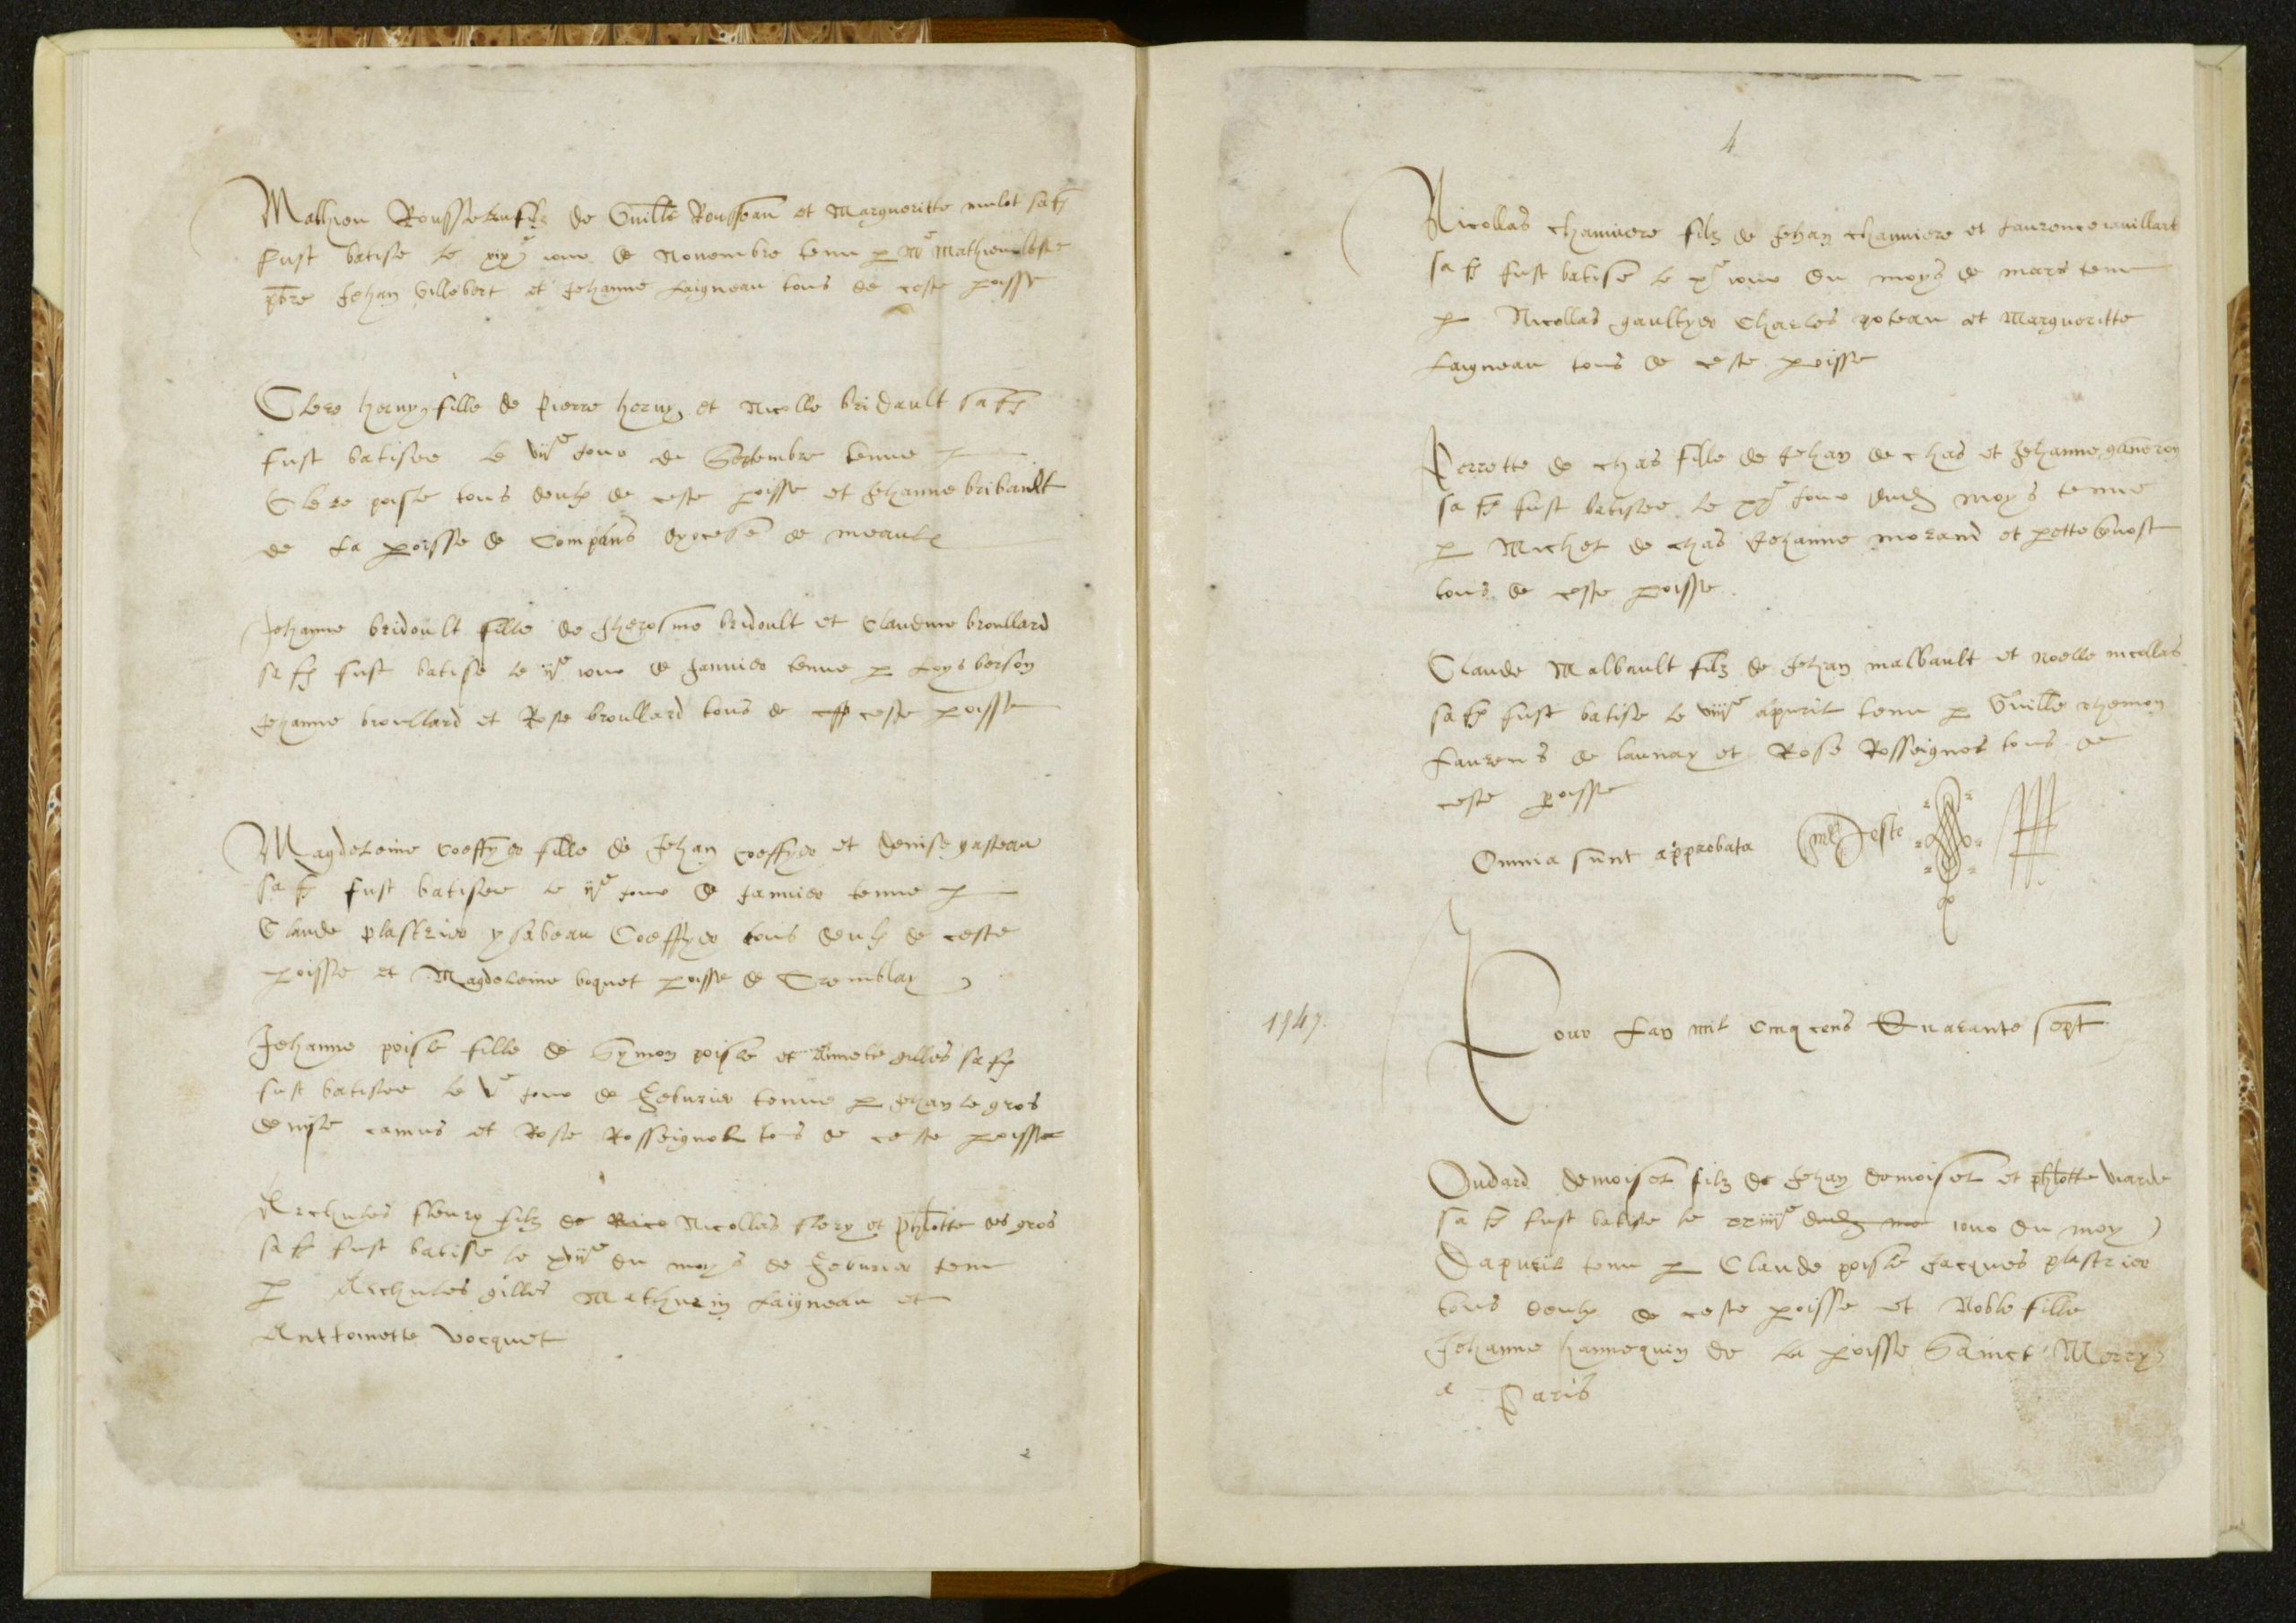 Mathieu Rousseau filz de Guille Rousseau et Margueritte mulot sa fe
fust batise le xix e iour de Novembre tenu p Me Mathieu leste
pbre Jehan Gillebert et Jehanne Laigneau tous de ceste poisse
Clere herny fille de Pierre herny et Nicolle bridault sa fe
fust batisee le vije Jour de Septembre tenue p
Clere poisle tous deulx de ceste poisse et Jehanne bribault
de La poisse de Compans dyocese de meaulx
Jehanne bridoult fille de Jherosme bridoult et Claudine broullard
sa fe fust batise le ije iour de Januier tenue p Loys berson
Jehanne broullard et Rose broullard tous de ceste poisse
Magdeleine Coeffyer fille de Jehan Coeffyer et Denise gasteau
sa fe fust batisee le ije Jour de Januier tenue p
Claude plastrier ysabeau Coeffyer tous deulx de ceste
poisse et Magdeleine boquet poisse de Tremblay
Jehanne poisle fille de Symon poisle et Annette gilles sa fe
fust batisee le ve Jour de Feburier tenue p Jehan le gros
denise camus et Rose Rosseignol tous de ceste poisse
Archules fleury filz de Nicollas flery et phlotte des gros
sa fe fust batise le xvije du moys de Feburier tenu
p Archules gilles Mathurin Laigneau et
Anttoinette Vocquet
4
Nicollas chauuiere filz de Jehan chauuiere et Laurence
sa fe fust batise le xe iour du moys de mars tenu
p Nicollas gaultyer Charles poteau et Margueritte
Laigneau tous de ceste poisse
Perrette de chas fille de Jehan de chas et Jehanne
sa fe fust batisee le Jour dud moys tenue
p Michel de chas Jehanne morand et pette
tous de ceste poisse
Claude Malbault filz de Jehan malbault et Noelle nicollas
sa fe fust batise le viije apuril tenu p Guille themon
Laurens de launay et Rose Rosseignol tous de
ceste poisse
Omnia sunt approbata
1547.
Pour Lan mil Cinq cens Quarante sept
Oudard demoisel filz de Jehan demoisel et phlotte viarde
sa fe fust batise le xxiiije dudz mo iour du moy
Dapuril tenu p Claude poisle Jacques plastrier
tous deulx de ceste poisse et Noble fille
Jehanne hannequin de La poisse Sainct Merry
a Paris